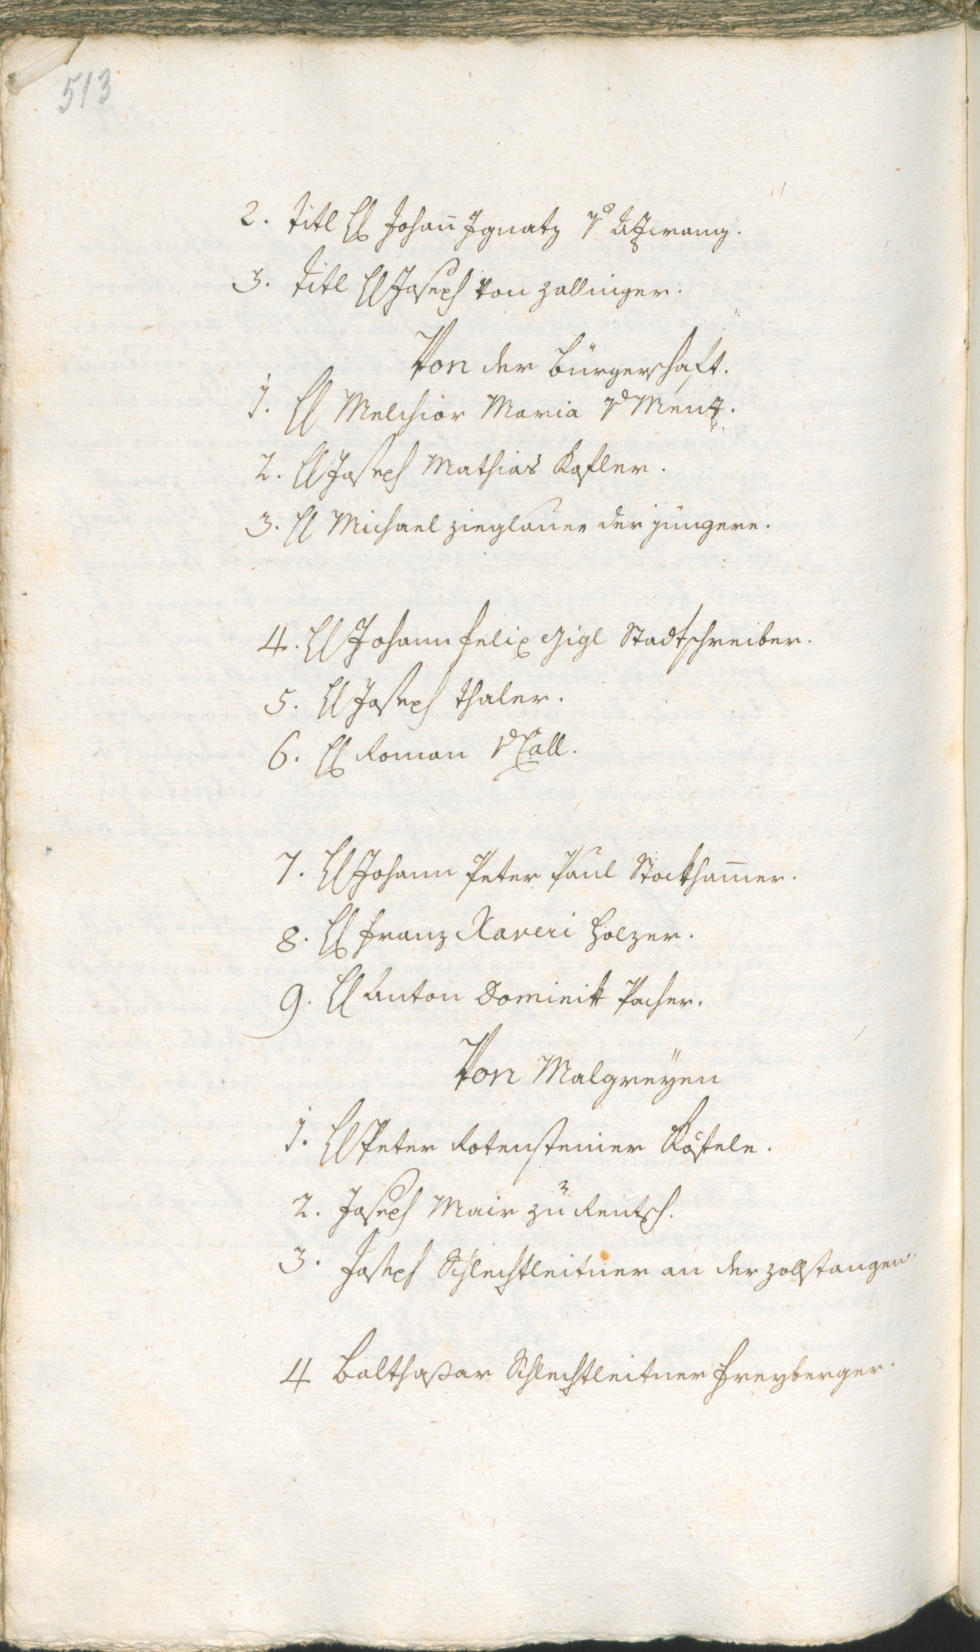 513
2. Titl H Johann Ignatz v Atzwang.
3. Titl H Joseph von Zallinger.
Von der Bürgerschaft.
1. H Melchior Maria v Menz.
2. H Joseph Mathias Kofler.
3. H Michael Zieglauer der jüngere.
4. H Johann Felix Gigl Stadtschreiber.
5. H Joseph Thaler.
6. H Roman v Call.
7. H Johann Peter Paul Stockhamer.
8. H Franz Xaveri Holzer.
9. H Anton Dominik Pacher.
Von Malgreÿen
1. H Peter Rotensteiner
2. Joseph Mair zu Rentsch.
3. Joseph Schlechtleitner an der Zollstangen.
4 Balthaßar Schlechtleitner Freyberger.